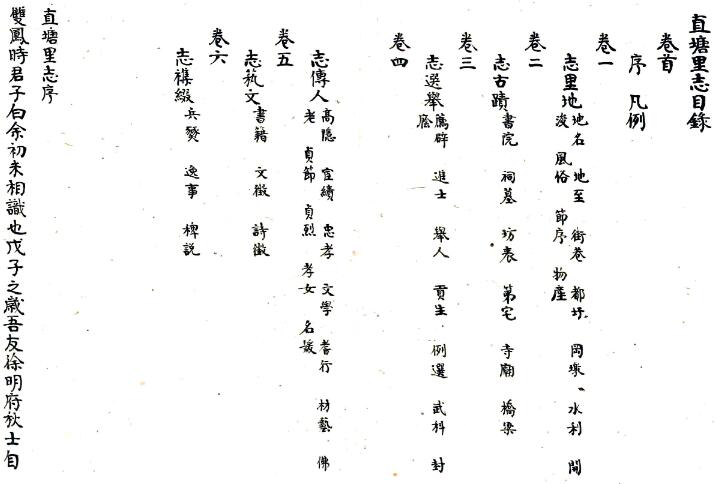 直塘里志目錄
卷首
序 凡例
卷一
志里地 地名 地至 街巷 都圩 岡墩 水利 開
浚 風俗 節序 物產
卷二
志古蹟 書院 祠墓 坊表 第宅 寺廟 橋梁
卷三
志選舉 薦辟 進士 舉人 貢生 例選 武科 封
廕
卷四
志傳人 高隱 宦績 忠孝 文學 耆行 材藝 佛
老 貞節 貞烈 孝女 名媛
卷五
志蓺文 書籍 文徵 詩徵
卷六
志襍綴 兵燹 逸事 稗説
直塘里志序
雙鳳時君子白余初未相識也戊子之歲吾友徐明府秋士自